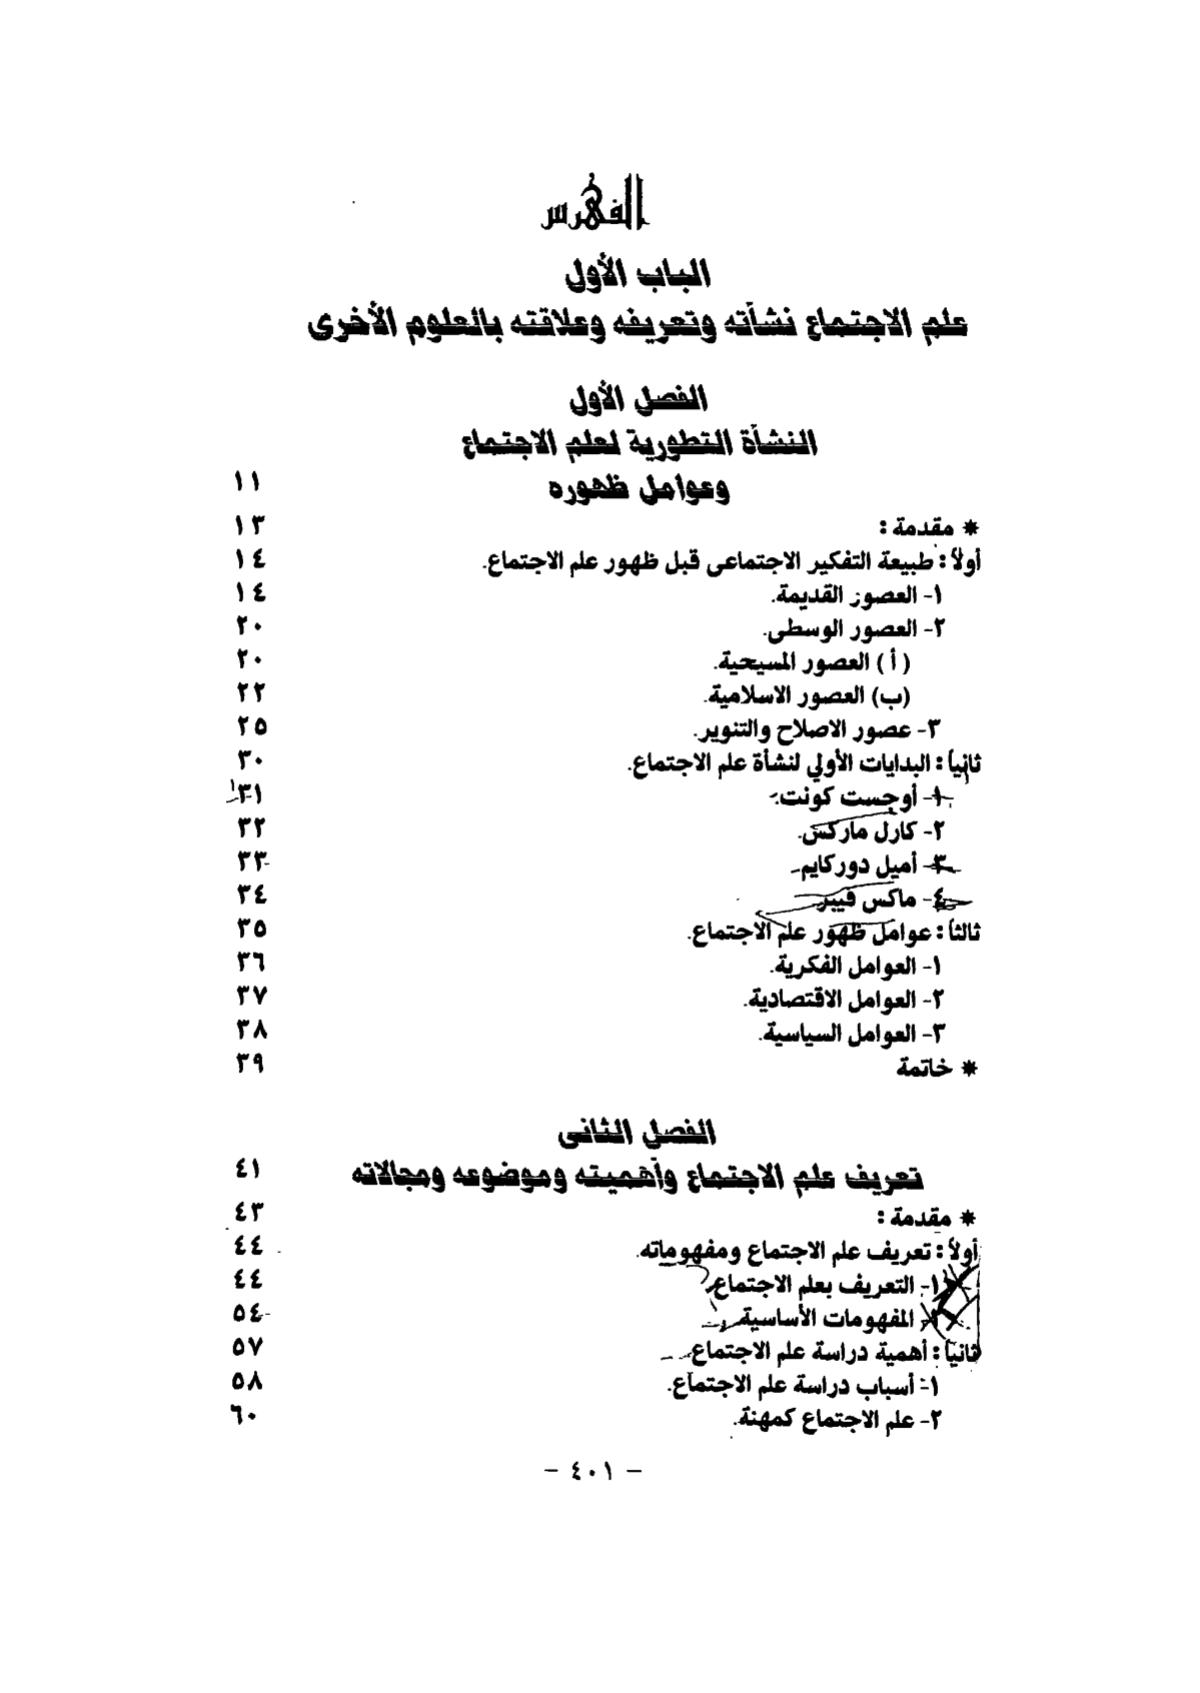 الفهرس
الباب الأول
علم الاجتماع نشأته وتعريفه وعلاقته بالعلوم الأخرى
الفصل الأول
النشأة التطورية لعلم الاجتماع
وعوامل ظهوره ١١
* مقدمة : ١٣
أولاً : طبيعة التفكير الاجتماعى قبل ظهور علم الاجتماع. ١٤
١- العصور القديمة. ١٤
٢- العصور الوسطى. ٢٠
( أ ) العصور المسيحية. ٢٠
(ب) العصور الاسلامية. ٢٢
٣- عصور الاصلاح والتنوير. ٢٥
ثانياً : البدايات الأولي لنشأة علم الاجتماع. ٣٠
١- أوجست كونت. ٣١
٢- كارل ماركس. ٣٢
٣- أميل دوركايم. ٣٣
٤- ماكس فيبر. ٣٤
ثالثاً : عوامل ظهور علم الاجتماع. ٣٥
١- العوامل الفكرية. ٣٦
٢- العوامل الاقتصادية. ٣٧
٣- العوامل السياسية. ٣٨
* خاتمة ٣٩
الفصل الثانى
تعريف علم الاجتماع وأهميته وموضوعه ومجالاته ٤١
* مقدمة : ٤٣
أولاً : تعريف علم الاجتماع ومفهوماته. ٤٤
١- التعريف بعلم الاجتماع. ٤٤
٢- المفهومات الأساسية. ٥٤
ثانياً : أهمية دراسة علم الاجتماع. ٥٧
١- أسباب دراسة علم الاجتماع. ٥٨
٢- علم الاجتماع كمهنة. ٦٠
- ٤٠١ -